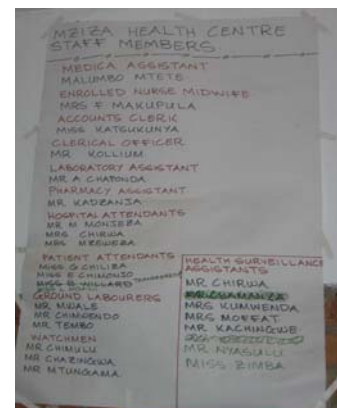 MZIZA HEALTH CENTRE
STAFF MEMBERS
MEDICA ASSISTANT
MALUMBO MTETE
ENROLLED NURSE MIDWIFE
MRS F MAKUPULA
ACCOUNTS CLERK
MISS KATSUKUNYA
CLERICAL OFFICER
MR KOLLIUM
LABORATORY ASSISTANT
MR A CHAPONDA
PHARMACY ASSISTANT
MR KADZANJA
HOSPITAL ATTENDANTS
MR M MONJEZA
MRS CHIRWA
MRS MZEWEZA
PATIENT ATTENDANTS
MISS G CHILIRA
MISS E CHIMONJO
MISS B WILLARD
GROUND LABOURERS
MR MWALE
MR CHIMGENDO
MR TEMBO
WATCHMEN
MR CHIMULU
MR CHAZINGWA
MR MTUNGAMA
HEALTH SURVEILLANCE
ASSISTANTS
MR CHIRWA
MR CHAMANZA
MRS KUMWENDA
MRS MOFFAT
MR KACHINGWE
MR NYASULU
MISS ZIMBA